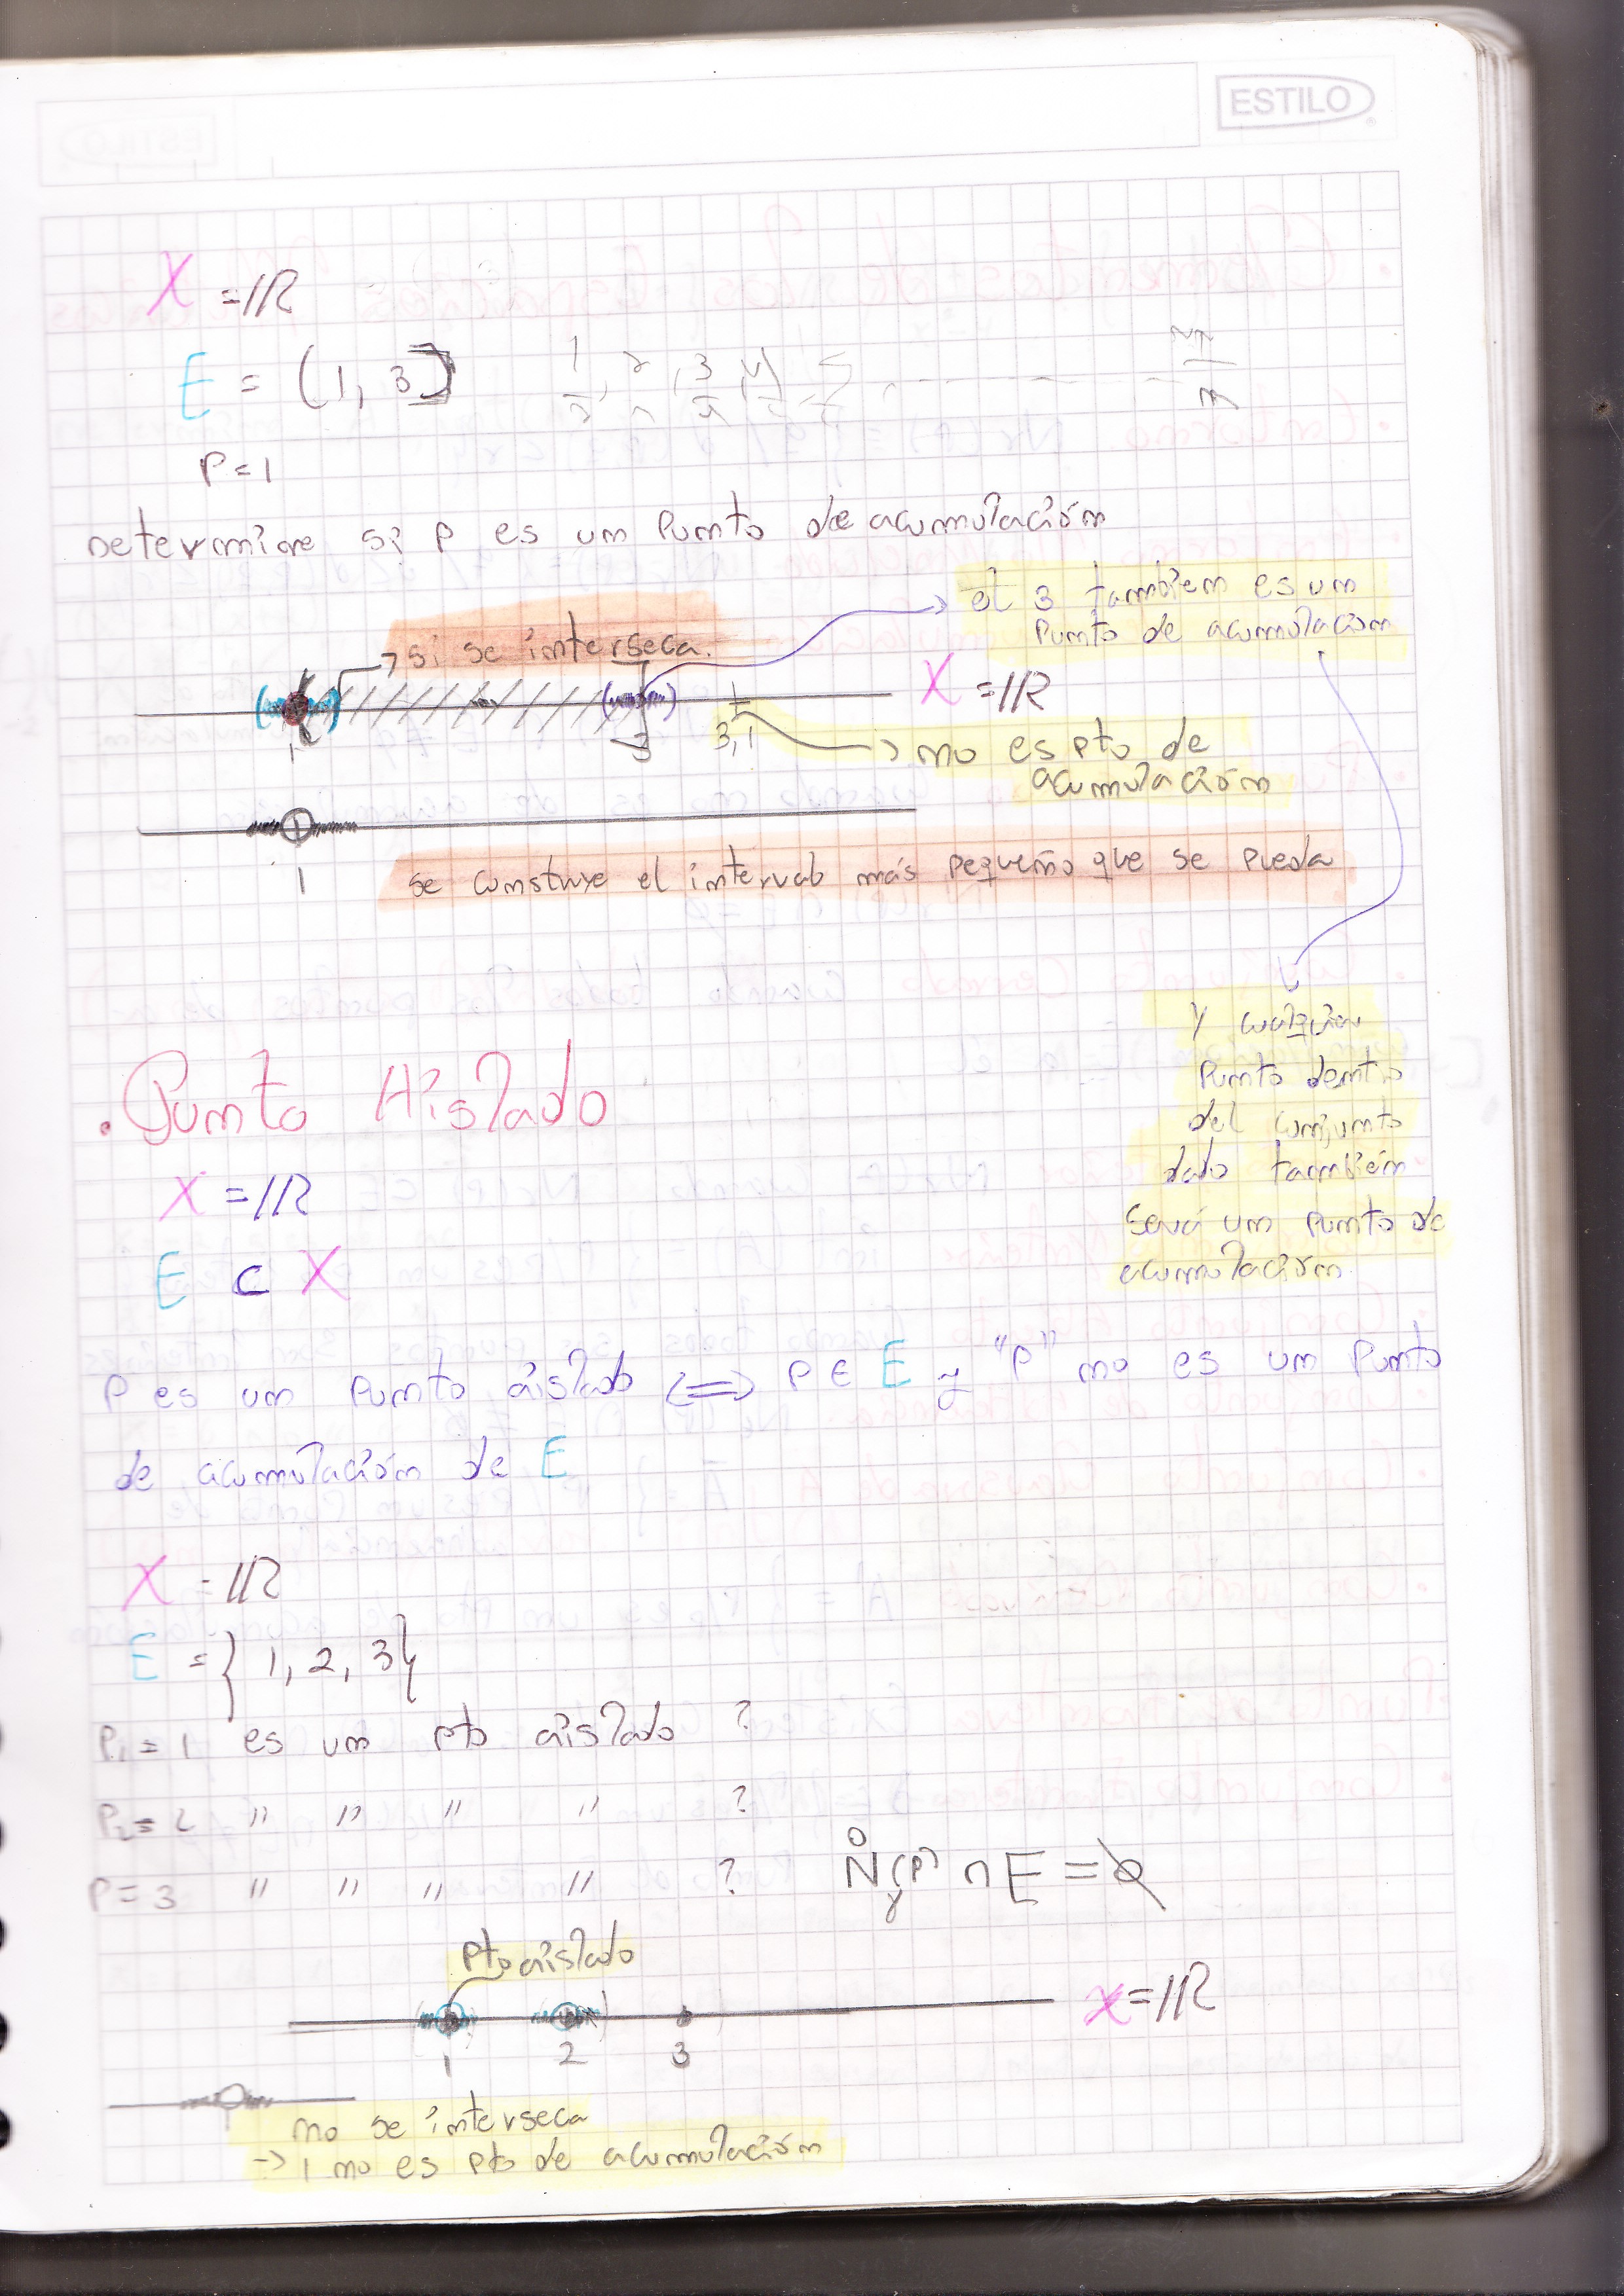 ESTILO
X = IR
E = (1, 3]
1/2, 2/3, 3/4, 4/5, 5/6, ------
P=1
Determine si P es un punto de acumulación
si se interseca.
el 3 también es un
punto de acumulación
X = IR
1 3 3,1
no es pto de
acumulación
1
se construye el intervalo más pequeño que se pueda
y cualquier
punto dentro
del conjunto
dado también
será un punto de
acumulación
. Punto Aislado
X = IR
E ⊂ X
P es un punto aislado ⟺ P ∈ E y "P" no es un punto
de acumulación de E
X = IR
E = { 1, 2, 3}
P₁ = 1 es un pto aislado ?
P₂ = 2 " " " " ?
P = 3 " " " " ? N̊r(P) ∩ E = ∅
pto aislado
X = IR
1 2 3
no se interseca
→ 1 no es pto de acumulación